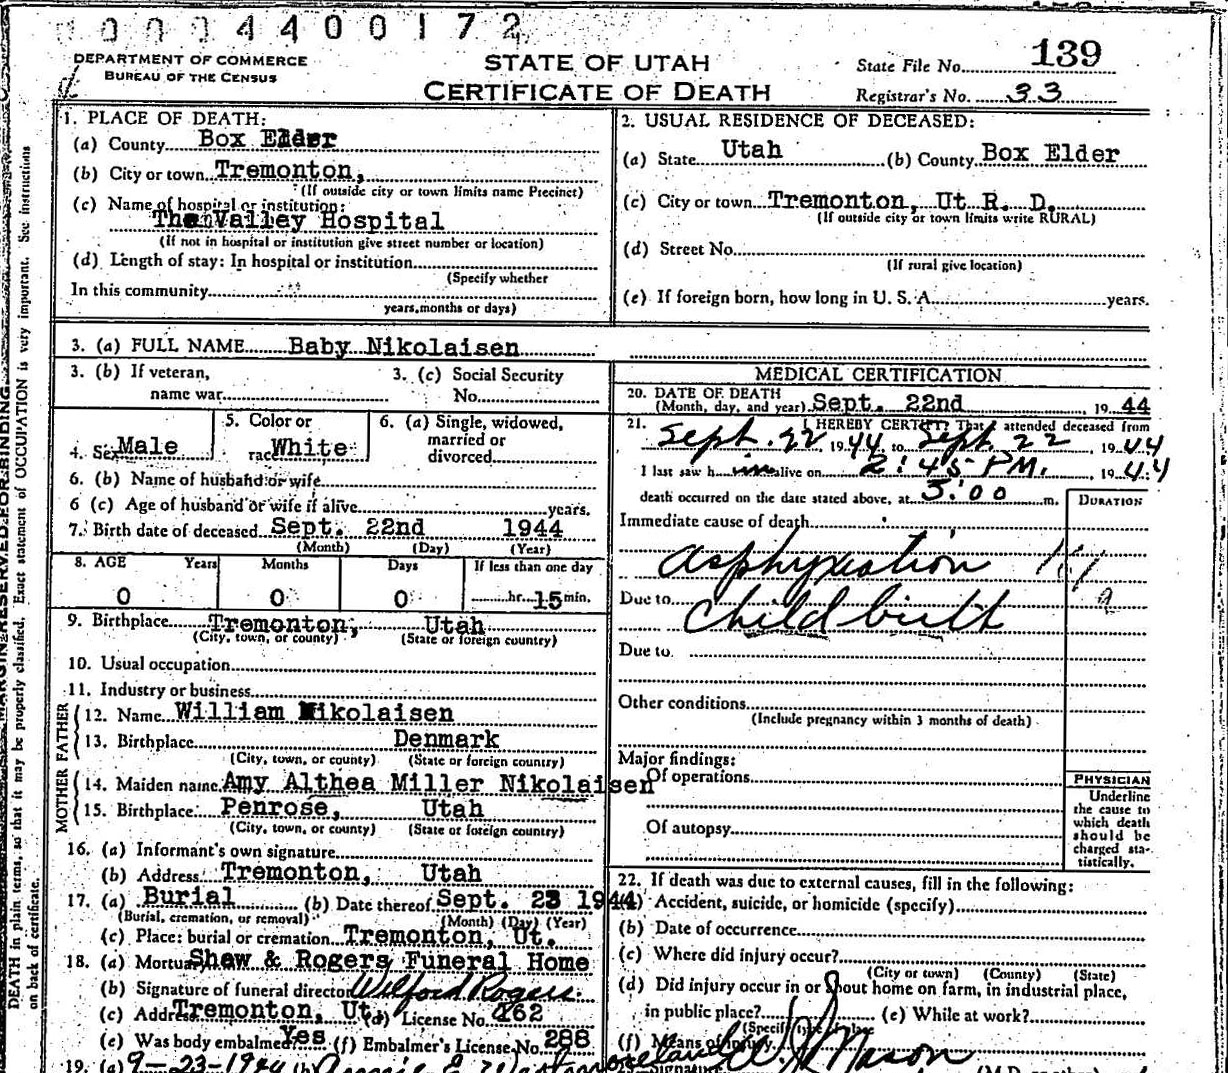 0 0 0 4 4 0 0 1 7 2
DEPARTMENT OF COMMERCE
BUREAU OF THE CENSUS
STATE OF UTAH
CERTIFICATE OF DEATH
State File No. 139
Registrar's No. 33
MARGIN RESERVED FOR BINDING
DEATH in plain terms, so that it may be properly classified. Exact statement of OCCUPATION is very important. See instructions
on back of certificate.
1. PLACE OF DEATH:
(a) County Box Elder
(b) City or town Tremonton,
(If outside city or town limits name Precinct)
(c) Name of hospital or institution:
The Valley Hospital
(If not in hospital or institution give street number or location)
(d) Length of stay: In hospital or institution
(Specify whether
In this community
years, months or days)
2. USUAL RESIDENCE OF DECEASED:
(a) State Utah (b) County Box Elder
(c) City or town Tremonton, Ut R. D.
(If outside city or town limits write RURAL)
(d) Street No.
(If rural give location)
(e) If foreign born, how long in U. S. A. years.
3. (a) FULL NAME Baby Nikolaisen
3. (b) If veteran, 3. (c) Social Security
name war No.
4. Sex Male 5. Color or race White 6. (a) Single, widowed, married or divorced
6. (b) Name of husband or wife
6 (c) Age of husband or wife if alive years.
7. Birth date of deceased Sept. 22nd 1944
(Month) (Day) (Year)
8. AGE Years Months Days If less than one day
0 0 0 hr. 15 min.
9. Birthplace Tremonton, Utah
(City, town, or county) (State or foreign country)
10. Usual occupation
11. Industry or business
FATHER
12. Name William Nikolaisen
13. Birthplace Denmark
(City, town, or county) (State or foreign country)
MOTHER
14. Maiden name Amy Althea Miller Nikolaisen
15. Birthplace Penrose, Utah
(City, town, or county) (State or foreign country)
16. (a) Informant's own signature
(b) Address Tremonton, Utah
17. (a) Burial (b) Date thereof Sept. 23 1944
(Burial, cremation, or removal) (Month) (Day) (Year)
(c) Place: burial or cremation Tremonton, Ut.
18. (a) Mortuary Shaw & Rogers Funeral Home
(b) Signature of funeral director Wilford Rogers
(c) Address Tremonton, Ut. (d) License No. 162
(e) Was body embalmed Yes (f) Embalmer's License No. 288
19. (a) 9-23-1944 (b)
MEDICAL CERTIFICATION
20. DATE OF DEATH
(Month, day, and year) Sept. 22nd 19 44
21. I HEREBY CERTIFY That I attended deceased from
Sept. 22 19 44 to Sept. 22, 19 44
I last saw h im alive on 2:45 PM. 19 44
death occurred on the date stated above, at 3:00 m.
DURATION
Immediate cause of death
asphyxiation
Due to Child birth
Due to
Other conditions
(Include pregnancy within 3 months of death)
Major findings:
Of operations
Of autopsy
PHYSICIAN
Underline
the cause to
which death
should be
charged sta-
tistically.
22. If death was due to external causes, fill in the following:
(a) Accident, suicide, or homicide (specify)
(b) Date of occurrence
(c) Where did injury occur?
(City or town) (County) (State)
(d) Did injury occur in or about home on farm, in industrial place,
in public place? (e) While at work?
(Specify type of place)
(f) Means of injury